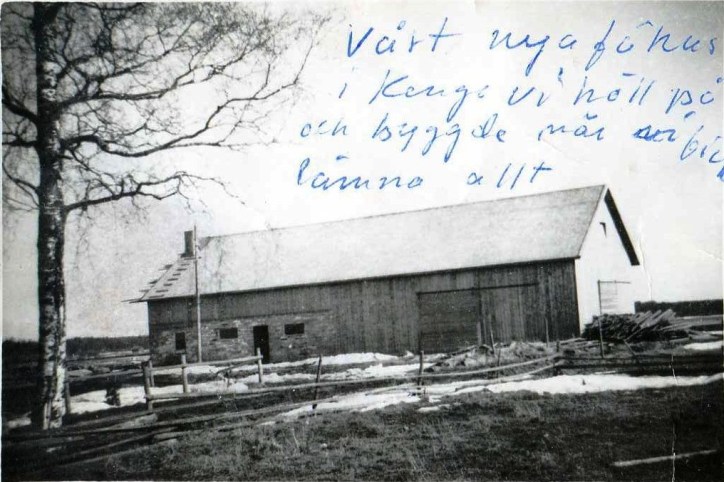 Vårt nya fähus
i Kenga vi höll på
och byggde när vi
lämna allt